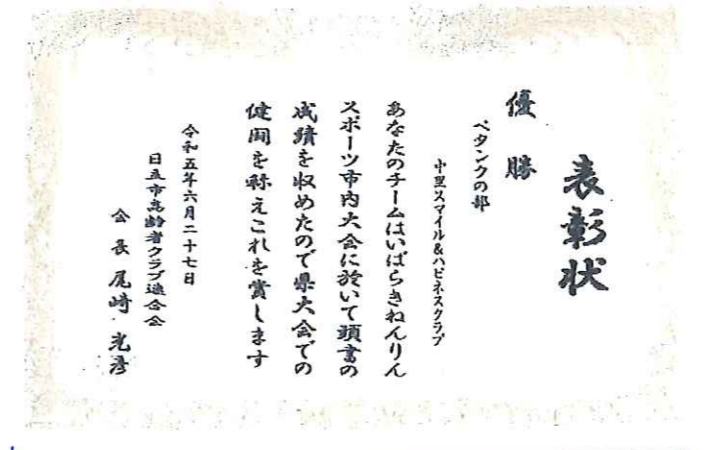 表彰状
優勝
ペタンクの部
中里スマイル&ハピネスクラブ
あなたのチームはいばらきねんりん
スポーツ市内大会に於いて頭書の
成績を収めたので県大会での
健闘を称えこれを賞します
令和五年六月二十七日
日立市高齢者クラブ連合会
会長 尾崎 光彦